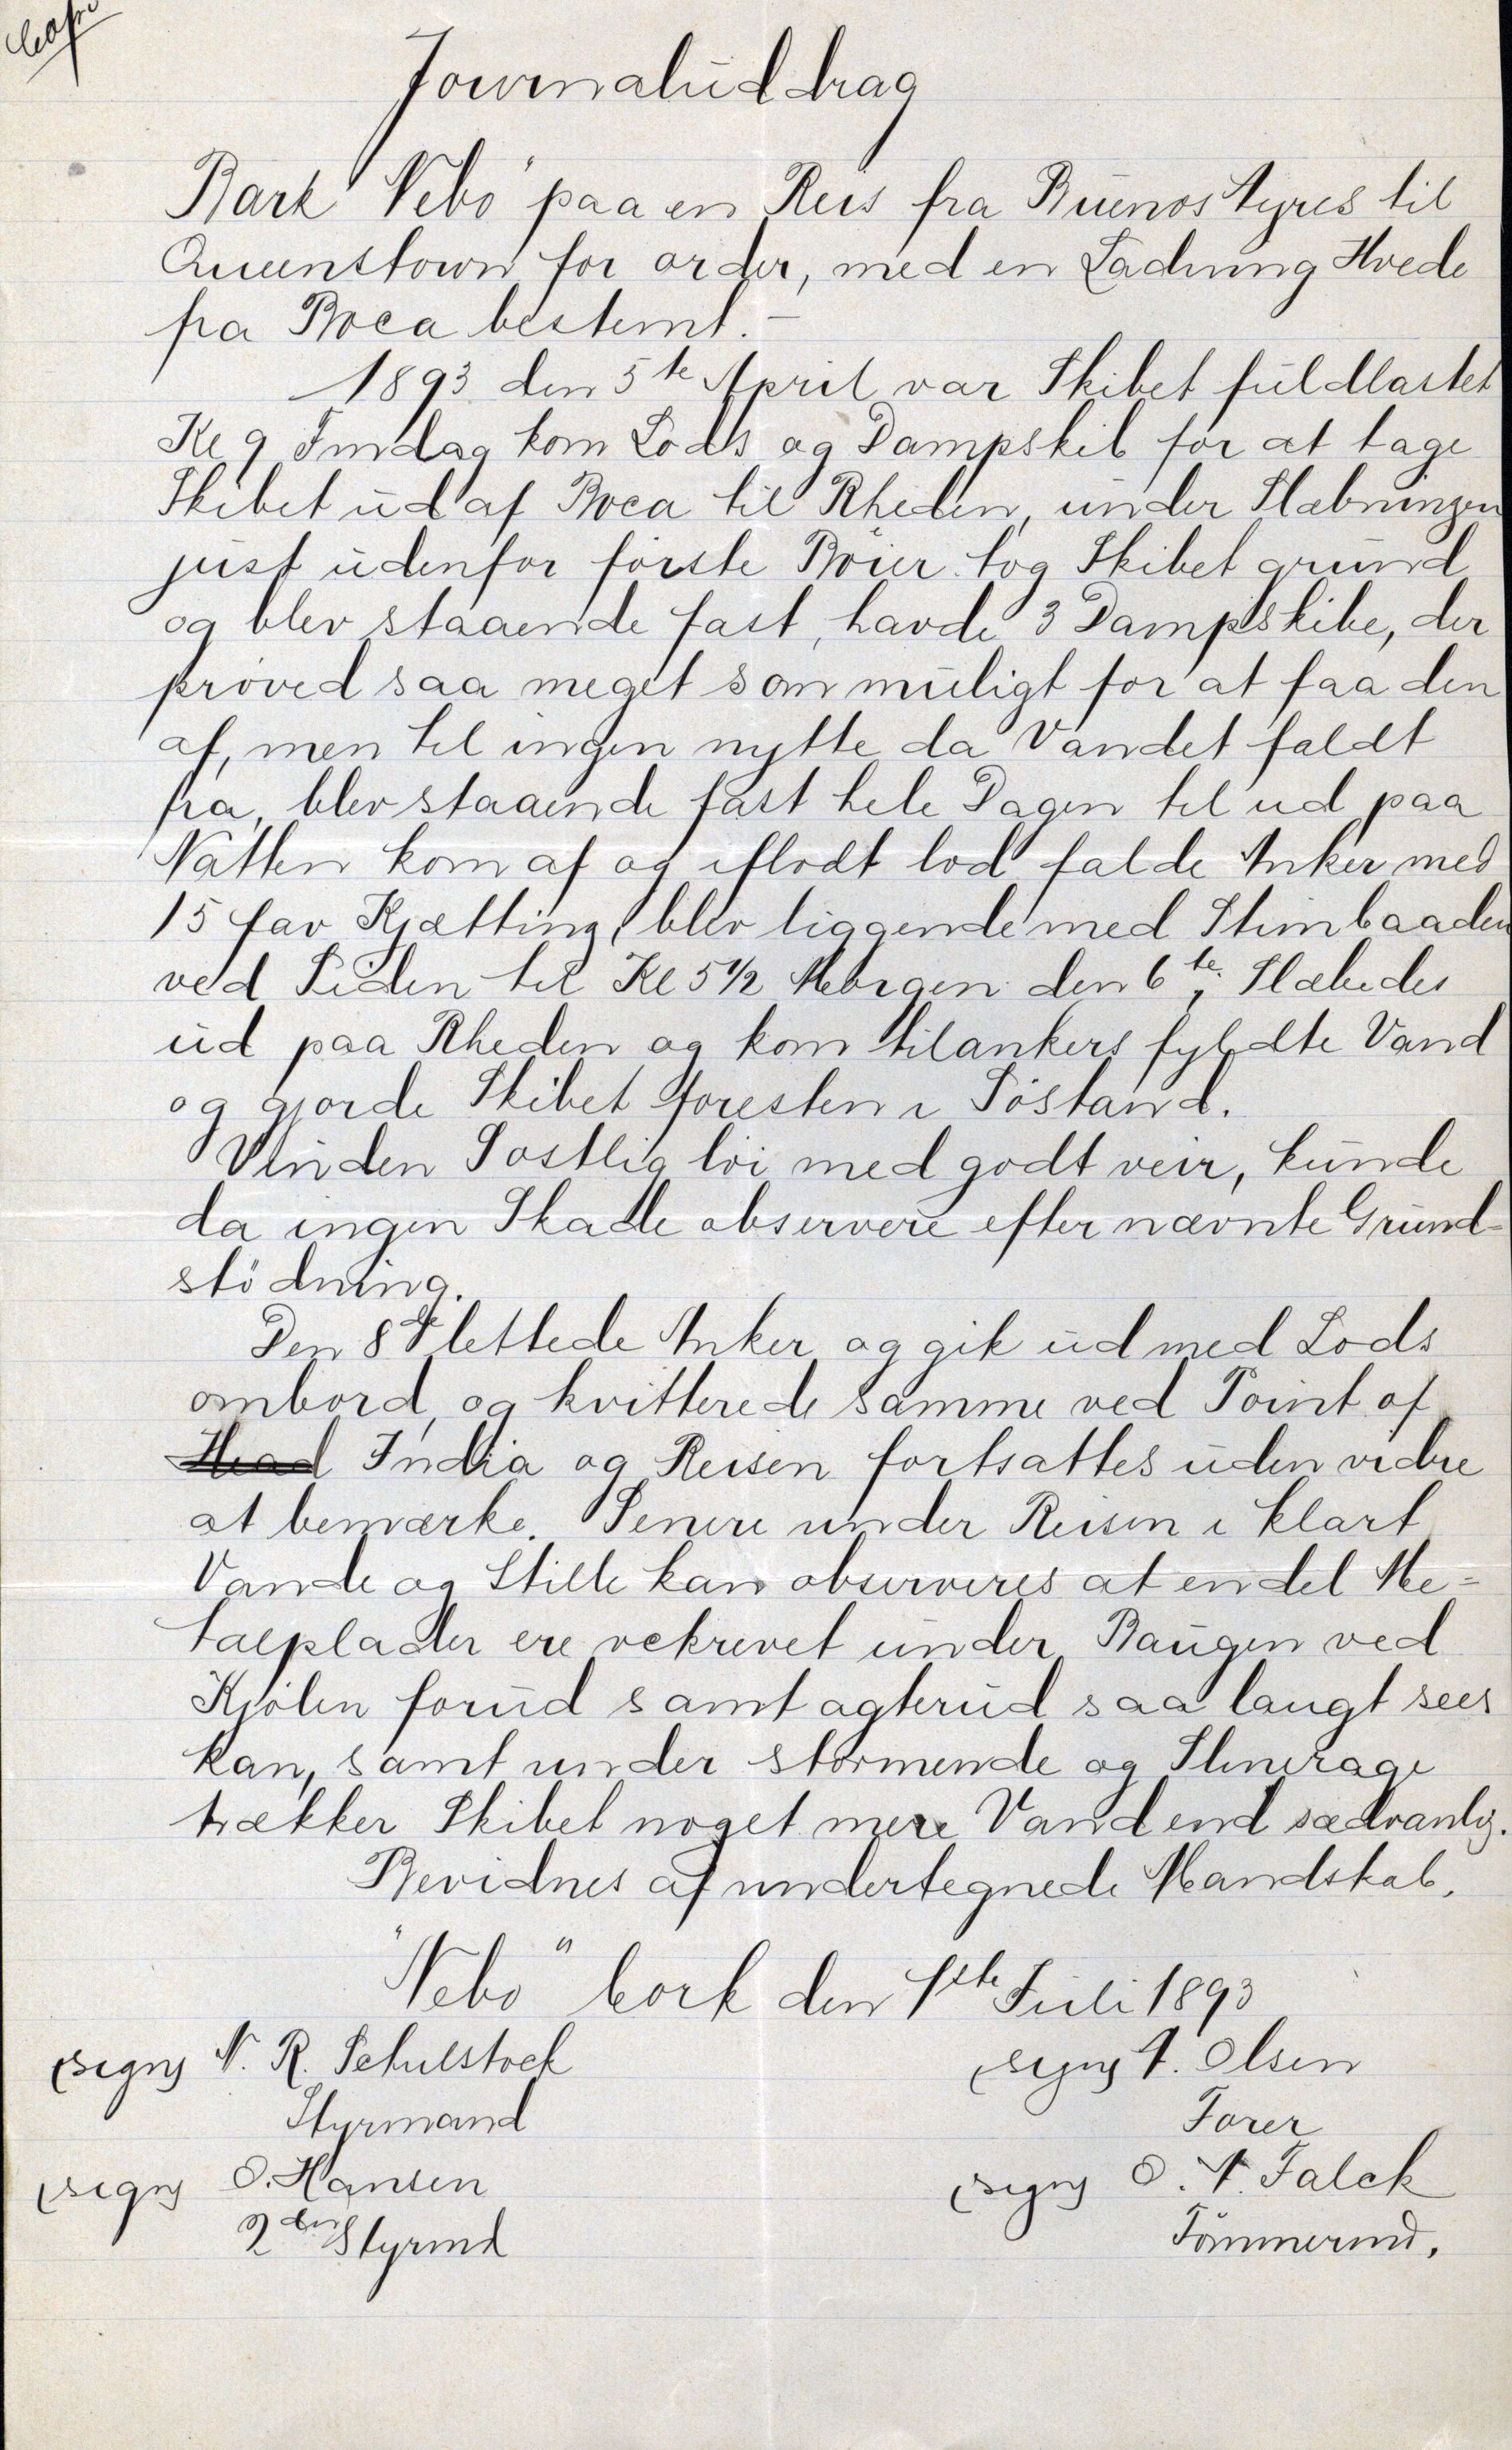 Copi
Journaluddrag
Bark "Nebo" paa en Reis fra Buenos Ayres til
Queenstown for order, med en Ladning Hvede
fra Boca bestemt. -
1893 den 5te April var Skibet fuldlastet
Kl 9 Fmdag kom Lods og Dampskib for at tage
Skibet ud af Boca til Rheden, under Slæbningen
just udenfor förste Böier tog Skibet grund
og blev staaende fast, havde 3 Dampskibe, der
pröved saa meget som muligt for at faa den
af, men til ingen nytte da Vandet faldt
fra, blev staaende fast hele Dagen til ud paa
Natten kom af og iflodt lod falde Anker med
15 fav Kjætting, blev liggende med Stimbaaden
ved Siden til Kl 5 1/2 Morgen den 6te, Slæbedes
ud paa Rheden og kom tilankers fyldte Vand
og gjorde Skibet foresten i Söstand.
Vinden Sostlig löi med godt veir, kunde
da ingen Skade observere efter nævnte Grund-
stödning.
Den 8de lettede Anker og gik ud med Lods
ombord, og kvitterede samme ved Point of
Head India og Reisen fortsattes uden vidre
at bemærke. Senere under Reisen i klart
Vande og Stille kan observeres at en del Me-
talplader ere vekrevet under Baugen ved
Kjölen forud samt agterud saa langt sees
kan, samt under stormende og
trækker Skibet noget mere Vand end sædvanlig.
Bevidnes af undertegnede Mandskab.
"Nebo" Cork den 1ste Juli 1893
(sign) N. R. Schulstock (sign) A. Olsen
Styrmand Förer
(sign) O. Hansen (sign) O. N. Falck
2den Styrmd Tömmermd.